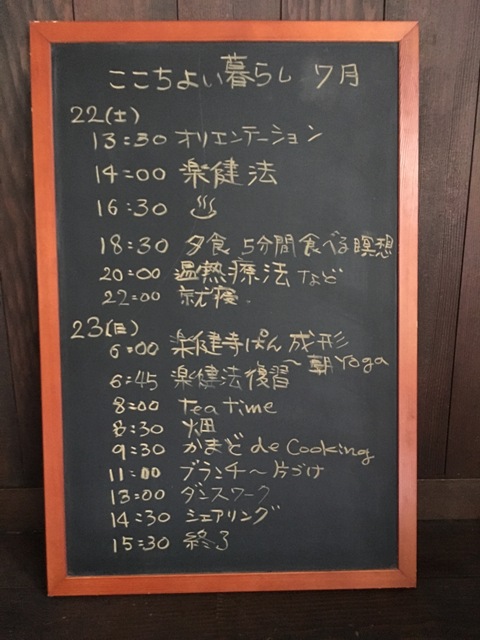 ここちよい暮らし 7月
22(土)
13:30 オリエンテーション
14:00 楽健法
16:30 ♨
18:30 夕食 5分間食べる瞑想
20:00 温熱療法など
22:00 就寝.
23(日)
6:00 楽健寺ぱん成形
～朝Yoga
6:45 楽健法復習
8:00 Tea Time
8:30 畑
9:30 かまど de Cooking
11:00 ブランチ～片づけ
13:00 ダンスワーク
14:30 シェアリング
15:30 終了